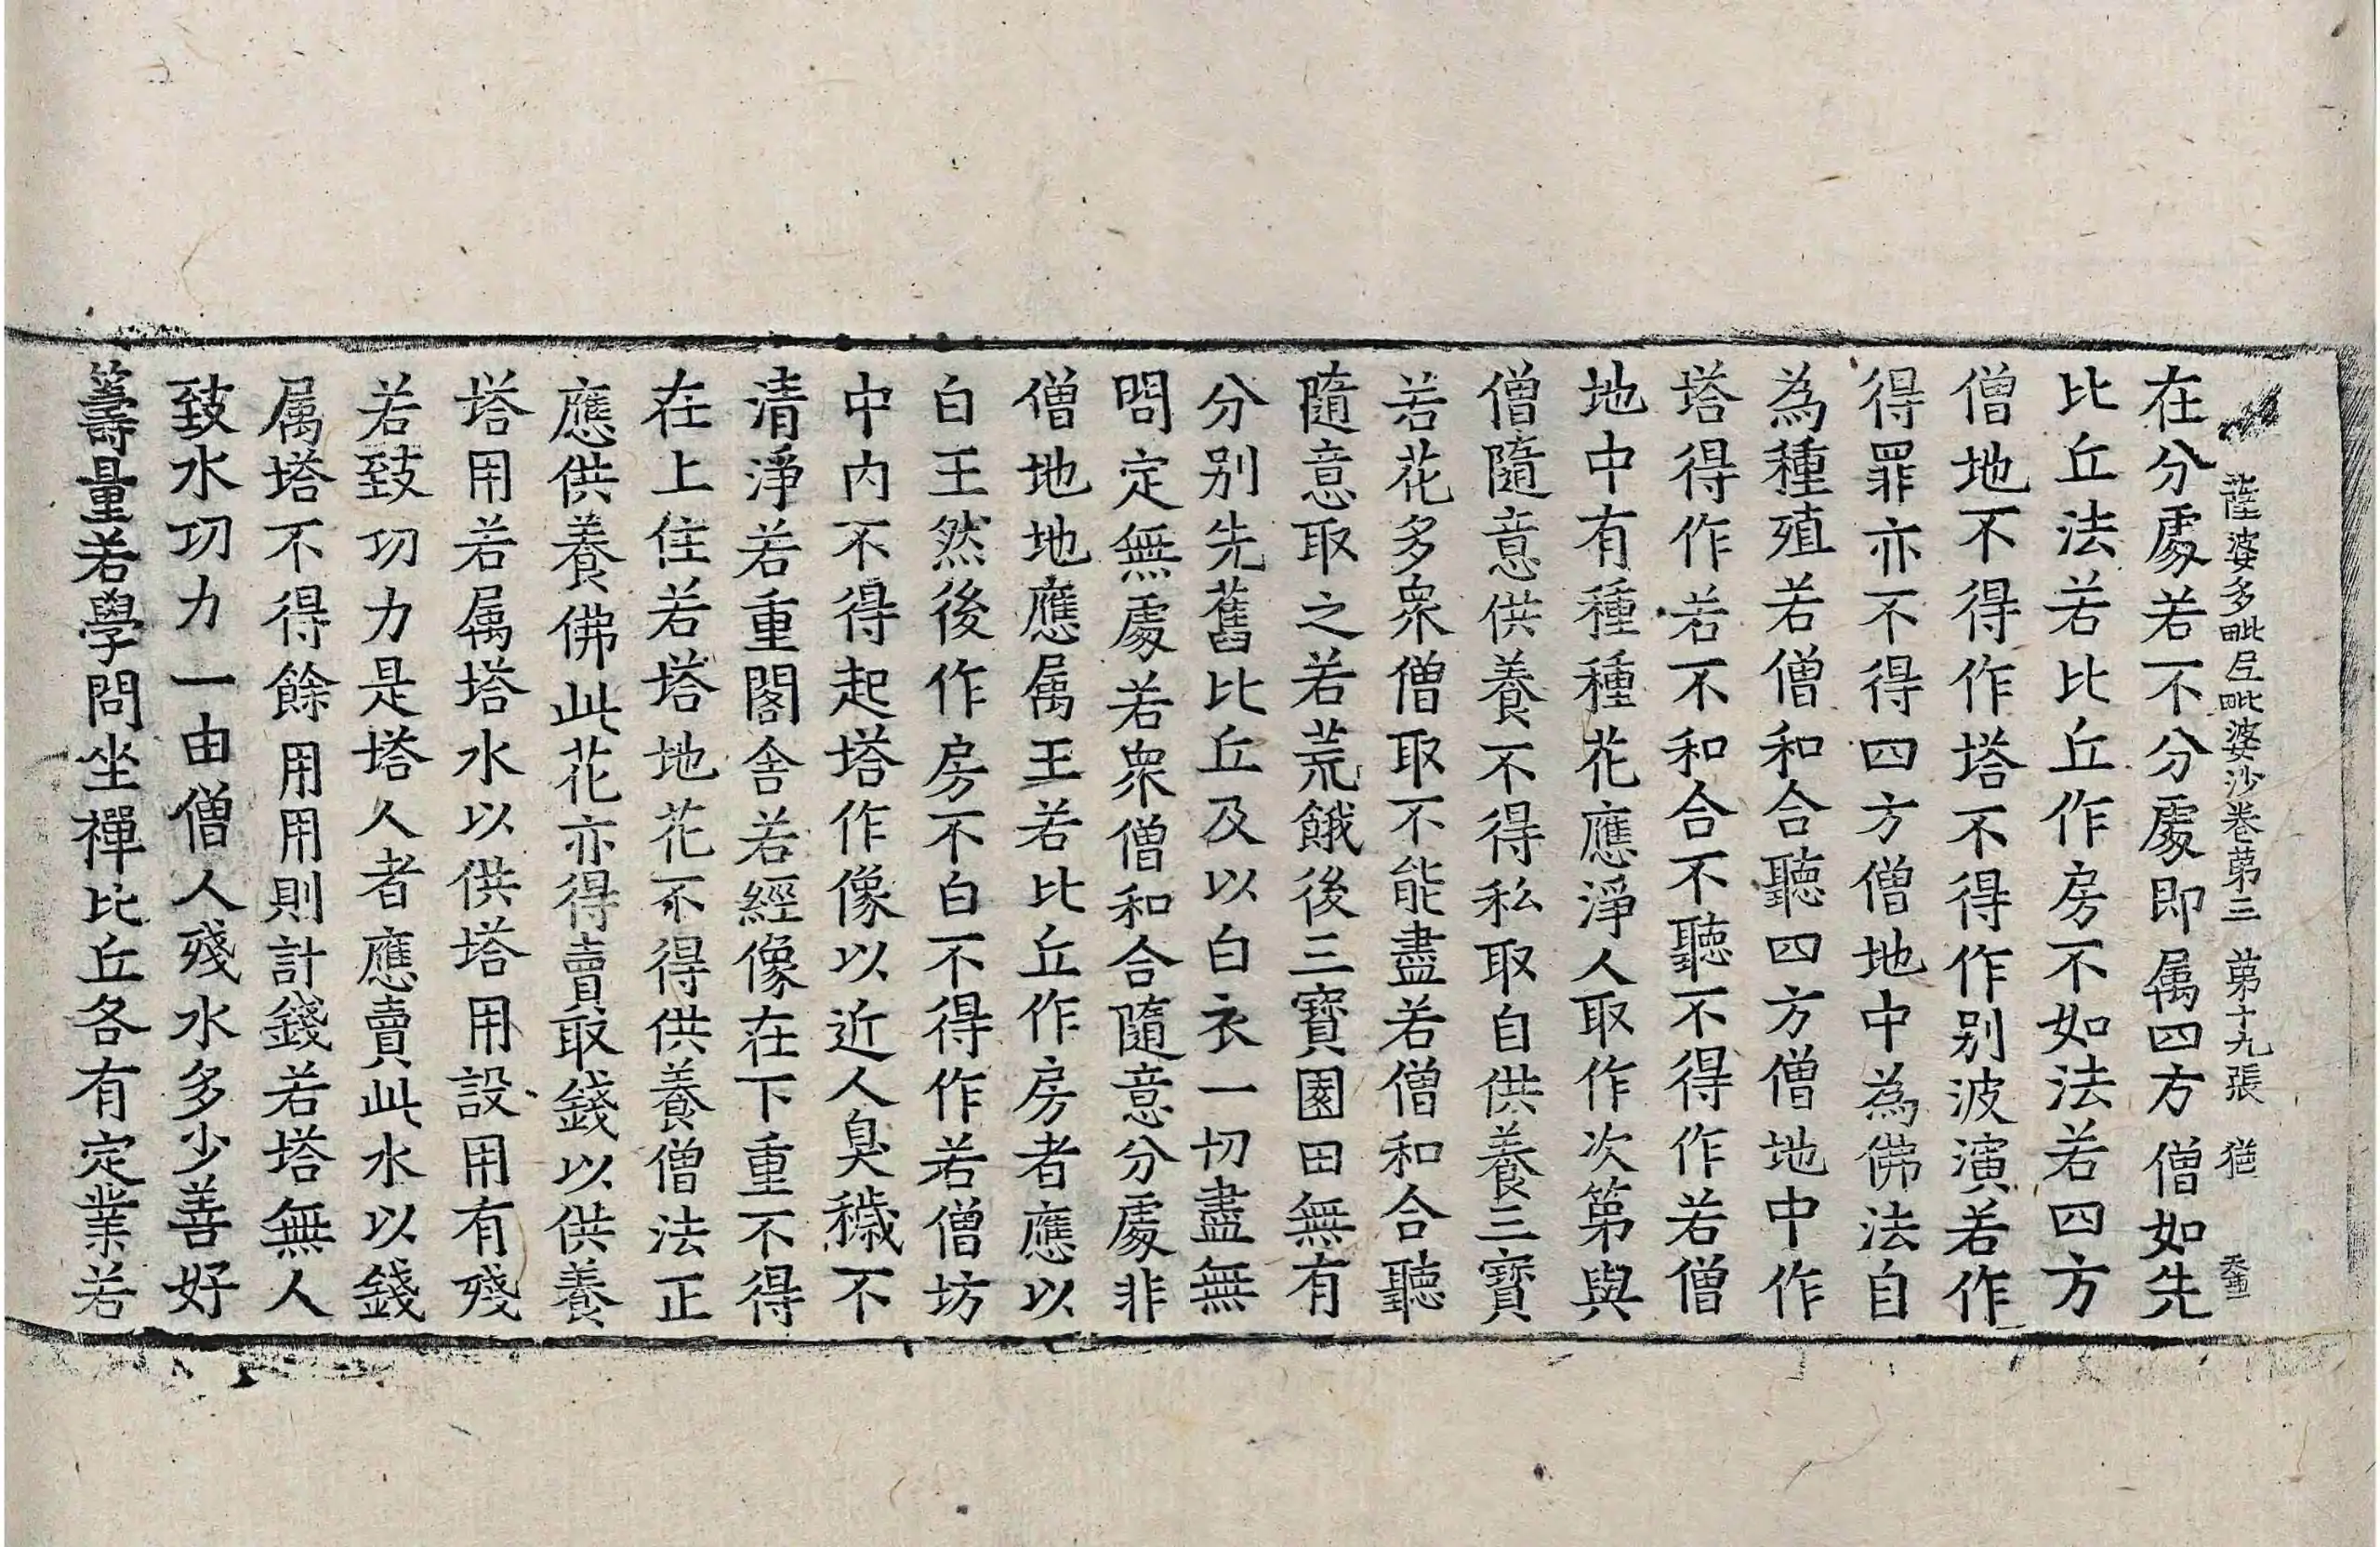 薩婆多毗尼毗婆沙卷第三 第十九張
在分處若不分處即属四方僧如先
比丘法若比丘作房不如法若四方
僧地不得作塔不得作别波演若作
得罪亦不得四方僧地中為佛法自
為種殖若僧和合聽四方僧地中作
塔得作若不和合不聽不得作若僧
地中有種種花應淨人取作次第與
僧隨意供養不得私取自供養三寶
若花多衆僧取不能盡若僧和合聽
隨意取之若荒餓後三寶園田無有
分别先舊比丘及以白衣一切盡無
問定無處若衆僧和合隨意分處非
僧地地應属王若比丘作房者應以
白王然後作房不白不得作若僧坊
中内不得起塔作像以近人臭穢不
清淨若重閣舍若經像在下重不得
在上住若塔地花不得供養僧法正
應供養佛此花亦得賣取錢以供養
塔用若属塔水以供塔用設用有殘
若致功力是塔久者應賣此水以錢
属塔不得餘用用則計錢若塔無人
致水功力一由僧人殘水多少善好
籌量若學問坐禪比丘各有定業若